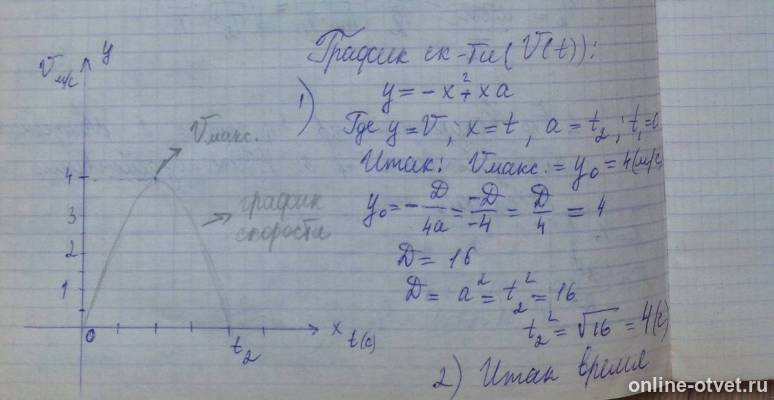 y
V м/с
Vмакс.
4
3
2
1
график
скорости
0
t₂
x
t(c)
График ск-ти (V(t)):
1)
y = -x² + xa
Где y = V, x = t, a = t₂; t₁ = 0
Итак: Vмакс. = y₀ = 4 (м/с
y₀ = -D/4a = -D/-4 = D/4 = 4
D = 16
D = a² = t₂² = 16
t₂² = √16 = 4(c)
2) Итак время
online-otvet.ru